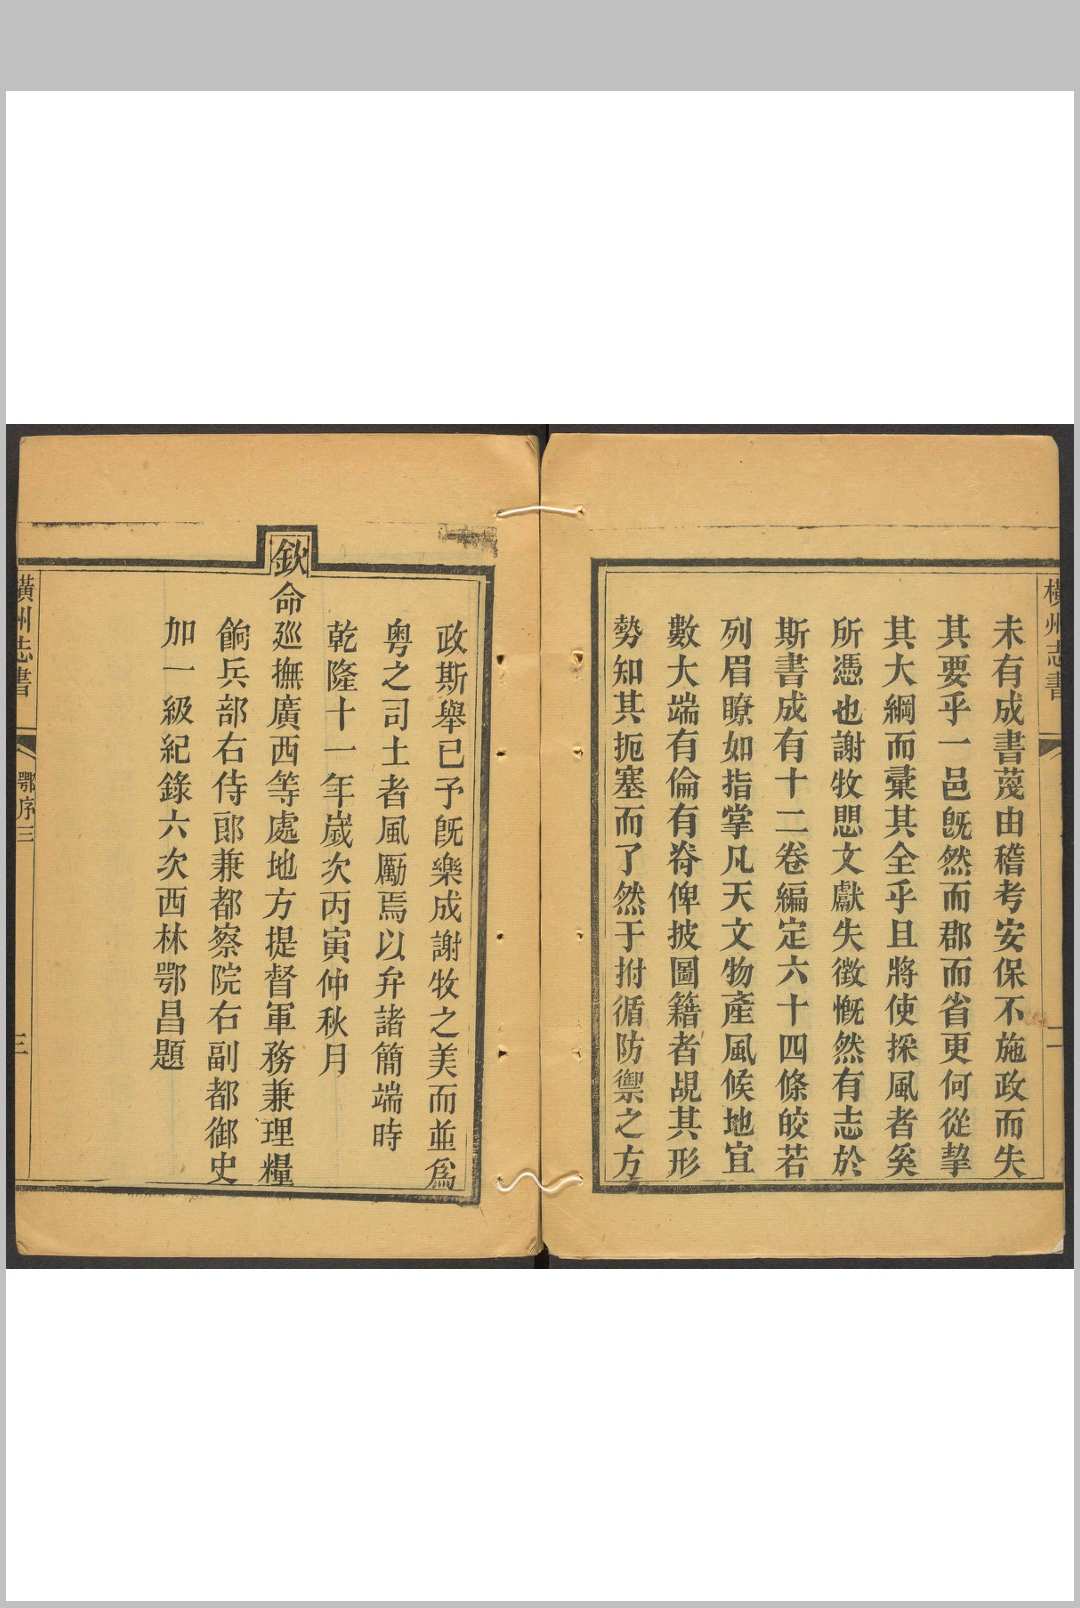 橫州志書
二
未有成書蔑由稽考安保不施政而失
其要乎一邑既然而郡而省更何從挈
其大綱而彚其全乎且將使採風者奚
所憑也謝牧愳文獻失徵慨然有志於
斯書成有十二卷編定六十四條皎若
列眉瞭如指掌凡天文物產風候地宜
數大端有倫有脊俾披圖籍者覘其形
勢知其扼塞而了然于拊循防禦之方
政斯舉已予既樂成謝牧之美而並爲
粤之司土者風勵焉以弁諸簡端時
乾隆十一年嵗次丙寅仲秋月
欽命廵撫廣西等處地方提督軍務兼理糧
餉兵部右侍郎兼都察院右副都御史
加一級紀錄六次西林鄂昌題
橫州志書
鄂序三
三